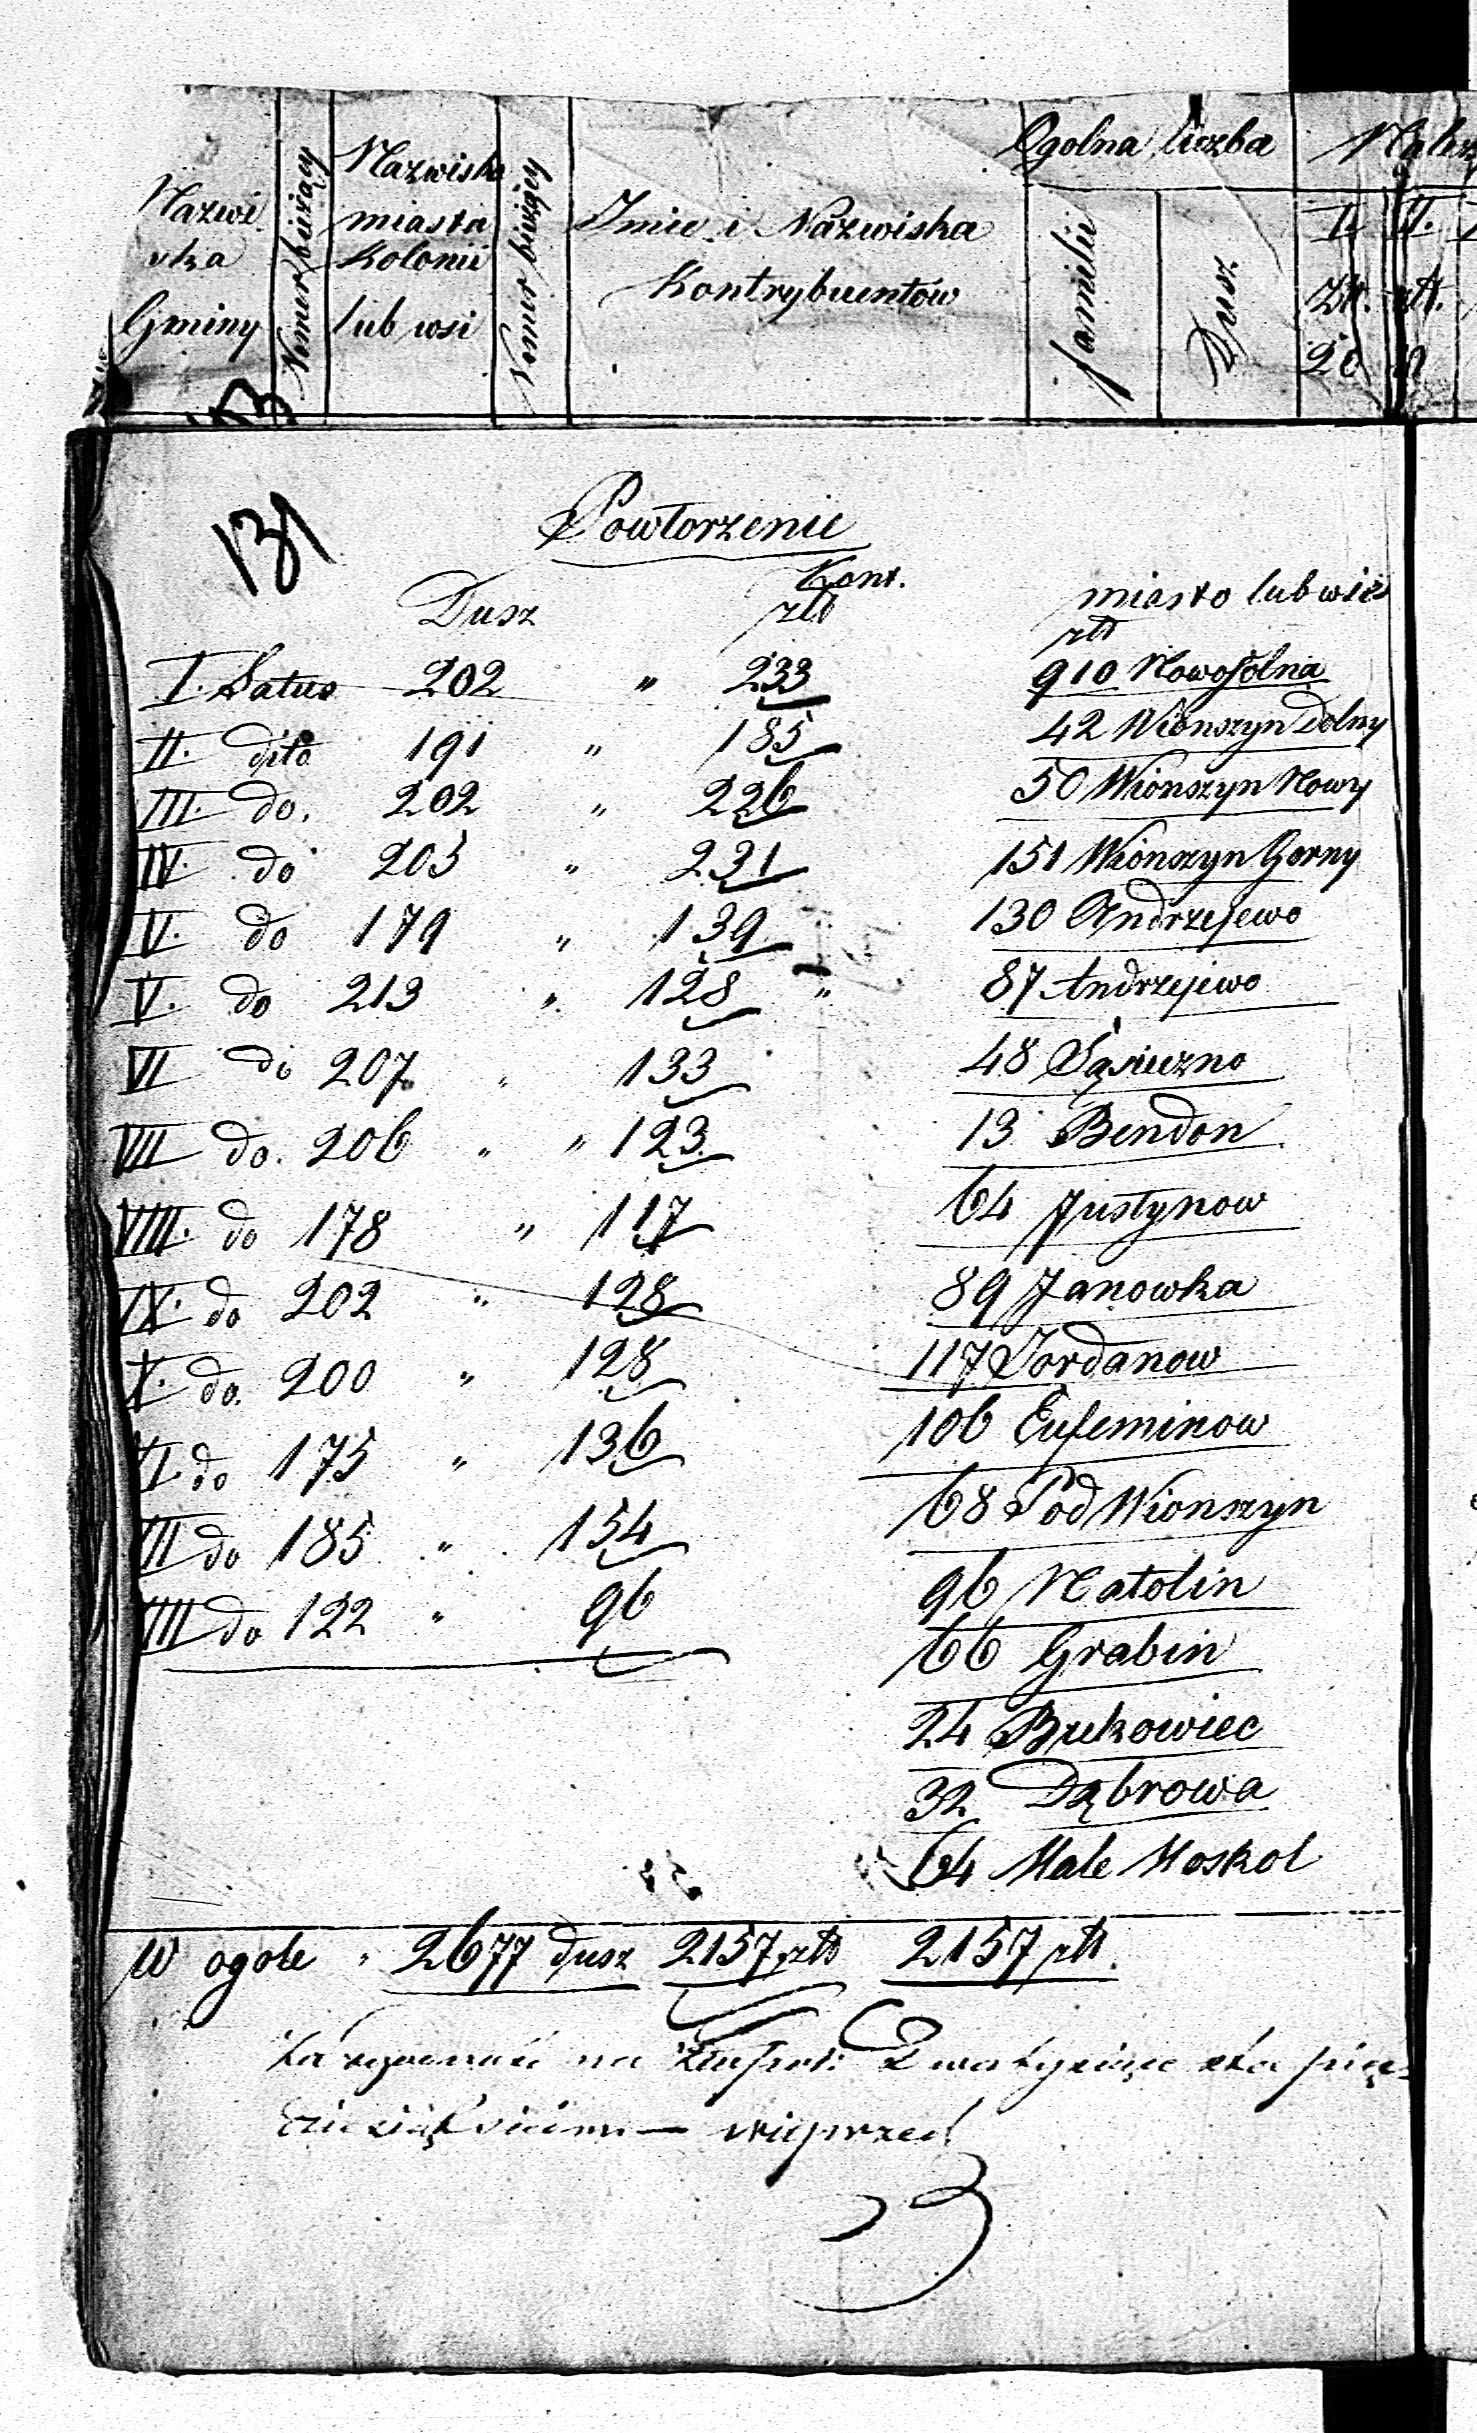 Nazwi-
ska
Gminy
Nomer bieżący
Nazwiska
miasta
Kolonii
lub wsi
Nomer bieżący
Imie i Nazwiska
Kontrybuentow
Ogolna liczba
familii
Dusz
I. II.
Złt. złt.
20
131
Powtorzenie
Dusz Kont. złt miasto lub wieś złt
I. Latus 202 " 233 910 Nowosolna
II. dito 191 " 185 42 Wionszyn Dolny
III. do. 202 " 226 50 Wionszyn Nowy
IV. do 205 " 231 151 Wionszyn Gorny
V. do 179 " 139 " 130 Andrzejewo
V. do 213 " 128 " 87 Andrzejewo
VI do 207 " 133 48 Sąsieczno
VII do. 206 " " 123 13 Bendon
VIII. do 178 " 117 64 Justynow
IX. do 202 " 128 89 Janowka
X. do. 200 " 128 117 Jordanow
XI do 175 " 136 106 Eufeminow
XII do 185 " 154 68 Pod Wionszyn
XIII do 122 " 96 96 Natolin
66 Grabin
24 Bukowiec
32 Dąbrowa
64 Małe Moskol
W ogole " 2677 dusz 2157 złt 2157 złt.
na Dwa tysiące sto pięć-
dziesiąt siedm —